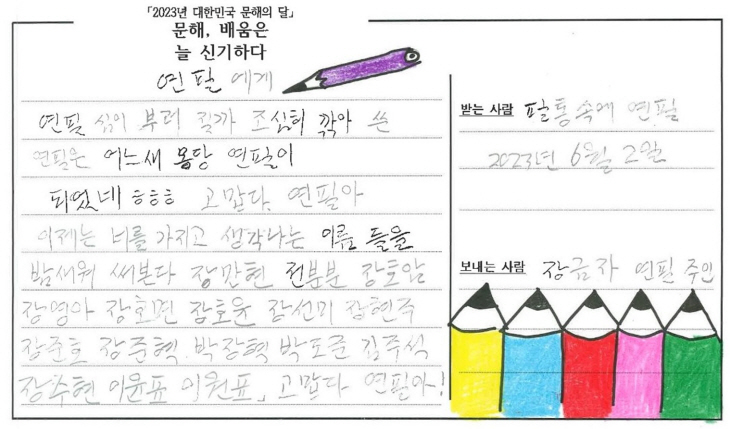 「2023년 대한민국 문해의 달」
문해, 배움은
늘 신기하다
연필에게
연필 심이 부러 질까 조심히 깎아 쓴
연필은 어느새 몽당 연필이
되었네 ㅎㅎㅎ 고맙다. 연필아
이제는 너를 가지고 생각나는 이름 들을
밤새워 써본다 장만현 전분분 장호암
장영아 장호면 장호윤 장선미 장현주
장준호 장준혁. 박장혁 박도준 김주석
장수현 이윤표 이원표」 고맙다 연필아!
받는 사람 필통속에 연필
2023년 6월 2일
보내는 사람 장금자 연필 주인